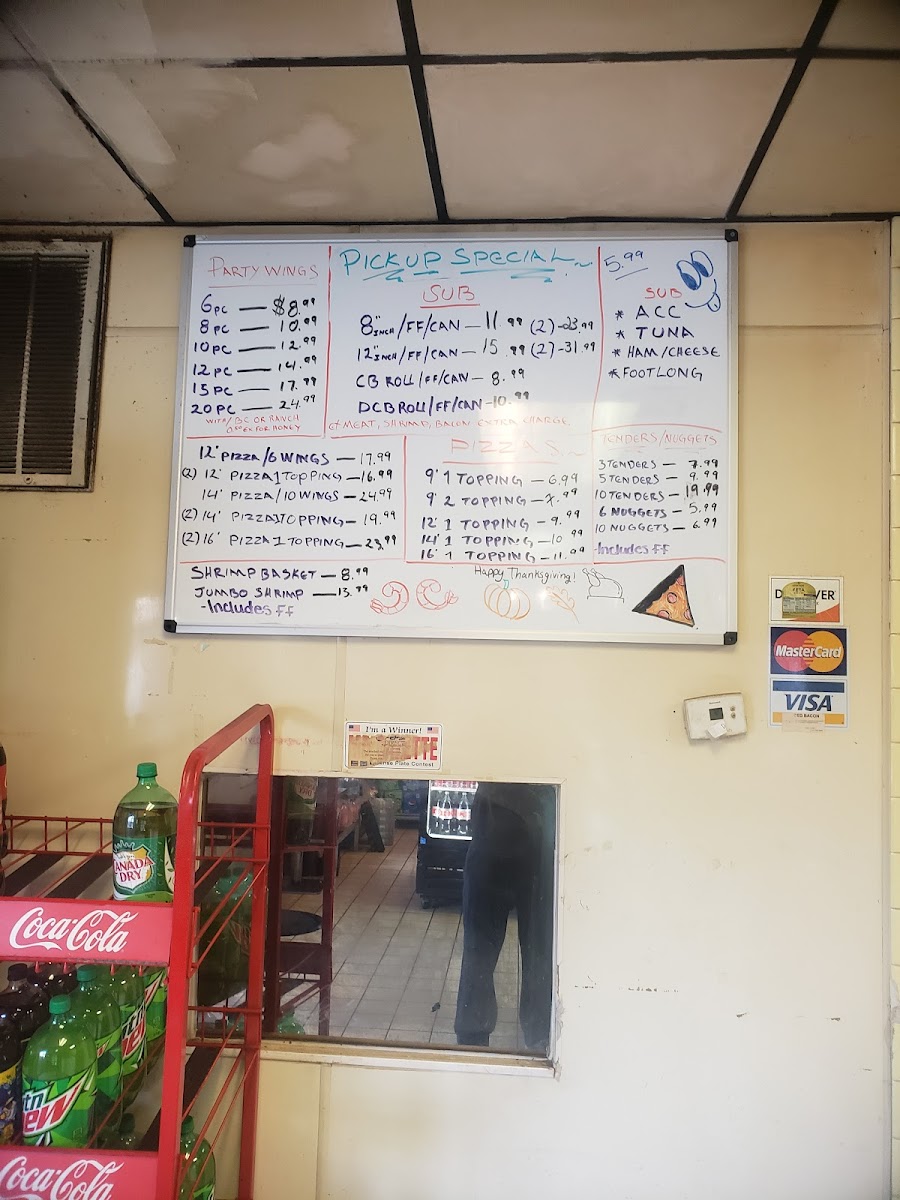 PARTY WINGS
6 PC — $8.99
8 PC — 10.99
10 PC — 12.99
12 PC — 14.99
15 PC — 17.99
20 PC — 24.99
WITH / BC OR RANCH
EX FOR HONEY
PICKUP SPECIAL
SUB
8" INCH/FF/CAN — 11.99 (2)-23.99
12" INCH/FF/CAN — 15.99 (2)-31.99
CB ROLL/FF/CAN — 8.99
DCB ROLL/FF/CAN - 10.99
MEAT, SHRIMP, BACON EXTRA CHARGE
5.99
SUB
* ACC
* TUNA
* HAM/CHEESE
* FOOTLONG
12' PIZZA/6 WINGS — 17.99
(2) 12' PIZZA 1 TOPPING — 16.99
14' PIZZA/10 WINGS — 24.99
(2) 14' PIZZA 1 TOPPING — 19.99
(2) 16' PIZZA 1 TOPPING — 23.99
PIZZAS
9' 1 TOPPING — 6.99
9' 2 TOPPING — .99
12' 1 TOPPING — 9.99
14' 1 TOPPING — 10.99
16' 1 TOPPING — 11.99
TENDERS/NUGGETS
3 TENDERS — 7.99
5 TENDERS — 9.99
10 TENDERS — 19.99
6 NUGGETS — 5.99
10 NUGGETS — 6.99
-Includes FF
SHRIMP BASKET — 8.99
JUMBO SHRIMP — 13.99
-Includes FF
Happy Thanksgiving!
MasterCard
VISA
I'm a Winner!
Plate Contest
CANADA
DRY
Coca-Cola
mtn
Dew
Coca-Cola